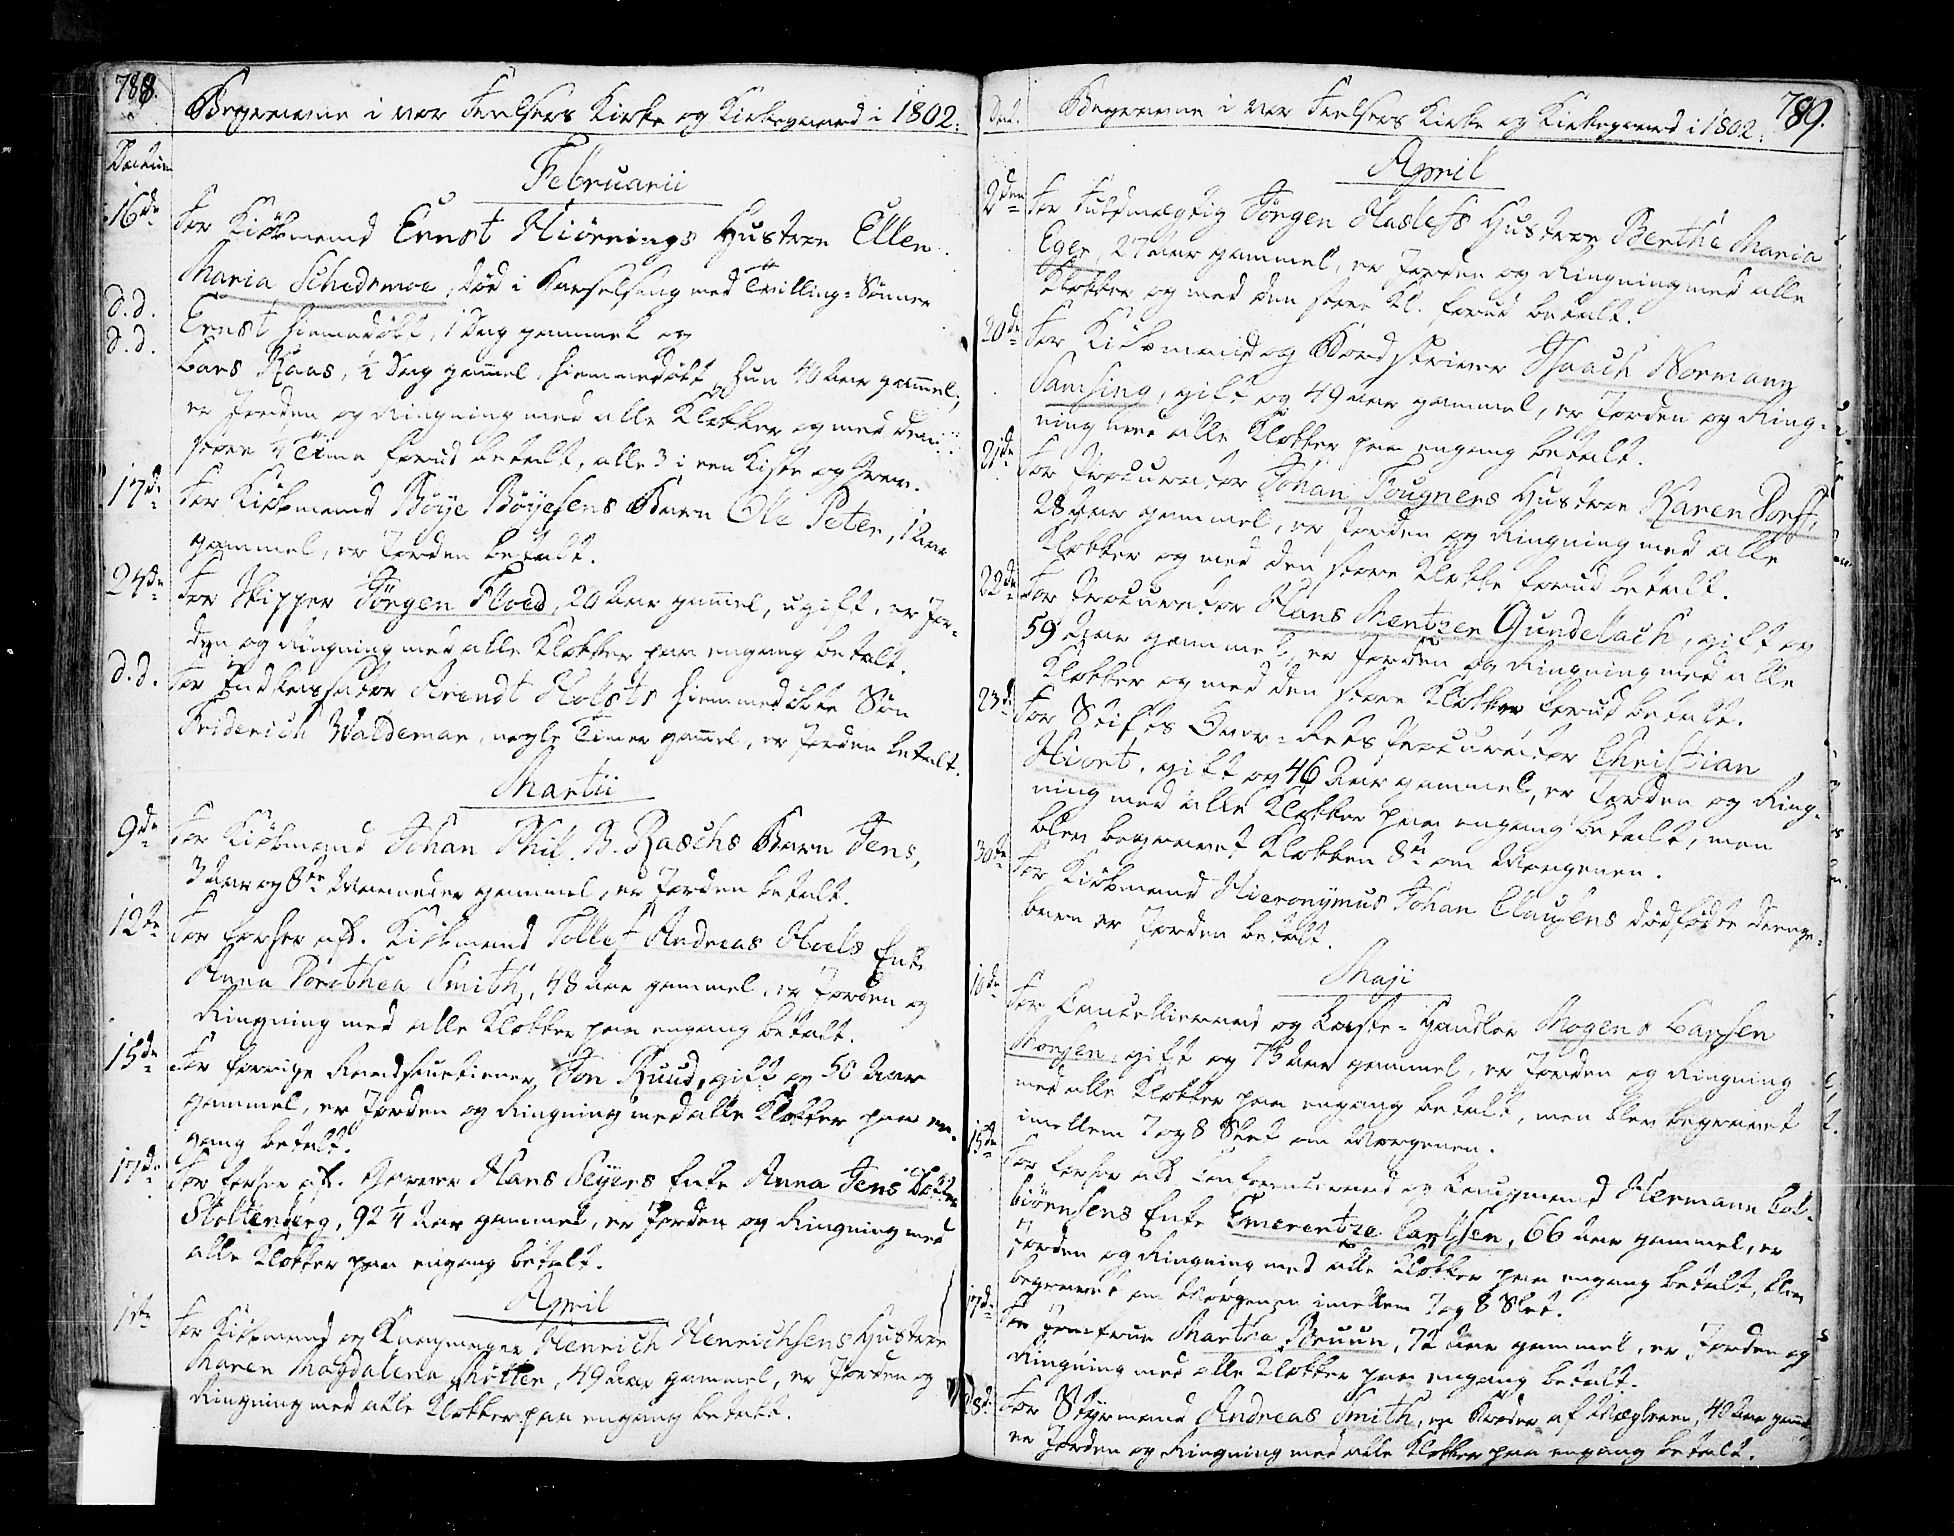 788.
Begravne i vor Frelsers Kirke og Kirkegaard i 1802.
Datum
Februarii
16de For Kiøbmand Ernst Hiørnings Hustroe Ellen
Maria Schedemoe, død i Barselseng med Tvilling-Sønner
d.d. Ernst hiemmedøbt, 1 Dag gammel og
d.d. Lars Kaas, ½ Dag gammel, hiemmedøbt, hun 40 Aar gammel,
er Jorden og Ringning med alle Klokker og med den
store ½ Time forud betalt, alle 3 i een Kiste og Grav.
17de For Kiøbmand Böye Böyesens Barn Ole Peter, 1 Aar
gammel, er Jorden betalt.
24de For Skipper Jörgen Flood, 20 Aar gammel, ugift, er Jor-
den og Ringning med alle Klokker paa engang betalt.
d.d. For Arendt Holsts hiemmedöbte Søn
Friderich Waldemar, nogle Timer gammel, er Jorden betalt.
Martii
9de For Kiøbmand Johan Phil. B. Raschs Barn Jens,
3 Aar og 8te Maaneder gammel, er Jorden betalt.
12te For forhen afd. Kiøbmand Tollef Andreas Hoels Enke
Anna Dorothea Smith, 48 Aar gammel, er Jorden og
Ringning med alle Klokker paa engang betalt.
15de For forrige Jon Ruud, gift og 50 Aar
gammel, er Jorden og Ringning med alle Klokker paa en-
gang betalt.
17de For forhen afd. Hans Seyers Enke Anna Jens Datter
Stoltenberg, 92 ¼ Aar gammel, er Jorden og Ringning med
alle Klokker paa engang betalt.
April
1ste For Kiøbmand og Henrich Henrichsens Hustroe
Maren Magdalena Möller, 49 Aar gammel, er Jorden og
Ringning med alle Klokker paa engang betalt.
789.
Dat. Begravne i vor Frelsers Kirke og Kirkegaard i 1802.
April
2den For Fuldmægtig Jörgen Haslefs Hustroe Berthe Maria
Eger, 27 Aar gammel, er Jorden og Ringning med alle
Klokker og med den store Kl. forud betalt.
20de For Kiøbmand og Bordskriver Isaach Normann
Samsing, gift og 49 Aar gammel, er Jorden og Ring-
ning med alle Klokker paa engang betalt.
21de For Procurator Johan Fougners Hustroe Karen Dorff,
28 Aar gammel, er Jorden og Ringning med alle
Klokker og med den store Klokke forud betalt.
22de For Procurator Hans Mentzen Gundelach, gift og
59 Aar gammel, er Jorden og Ringning med alle
Klokker og med den store Klokke forud betalt.
23de For Stifts Over-Rets Procurator Christian
Hiort, gift og 46 Aar gammel, er Jorden og Ring-
ning med alle Klokker paa engang betalt, men
blev begravet Klokken 8te om Morgenen.
30te For Kiøbmand Hieronymus Johan Clausens dødfødte Drenge-
barn er Jorden betalt.
Maji
10de For Cancellieraad og Mogens Larsen
Monsen, gift og 75 Aar gammel, er Jorden og Ringning
med alle Klokker paa engang betalt, men blev begravet
imellem 7 og 8 Slet om Morgenen.
15de For forhen afd. Conferenceraad og Laugmand Hermann Col-
biörnsens Enke Emerentze Carlsen, 66 Aar gammel, er
Jorden og Ringning med alle Klokker paa engang betalt, blev
begravet om Morgenen imellem 7 og 8 Slet.
17de For Jomfrue Martha Bruun, 72 Aar gammel, er Jorden og
Ringning med alle Klokker paa engang betalt.
28de For Styrmand Andreas Smith, en Broder af 40 Aar gammel,
er Jorden og Ringning med alle Klokker paa engang betalt.